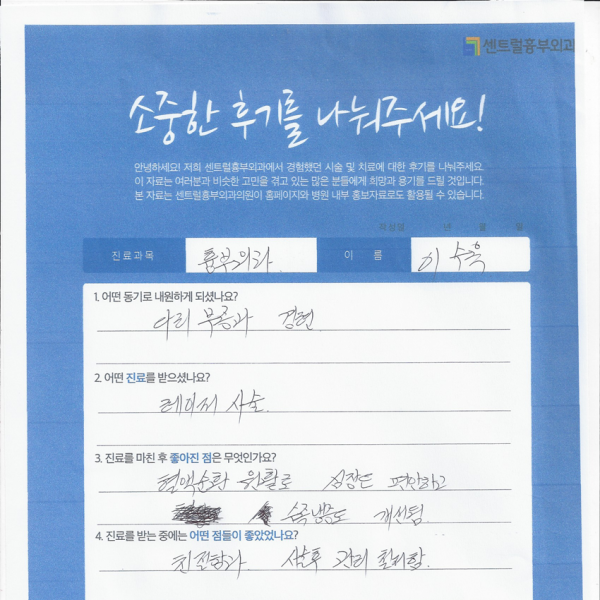 센트럴흉부외과
소중한 후기를 나눠주세요!
안녕하세요! 저희 센트럴흉부외과에서 경험했던 시술 및 치료에 대한 후기를 나눠주세요.
이 자료는 여러분과 비슷한 고민을 겪고 있는 많은 분들에게 희망과 용기를 드릴 것입니다.
본 자료는 센트럴흉부외과의원이 홈페이지와 병원 내부 홍보자료로도 활용될 수 있습니다.
작성일 년 월 일
진료과목 흉부외과 이 름 이수옥
1. 어떤 동기로 내원하게 되셨나요?
다리 부종과 경련
2. 어떤 진료를 받으셨나요?
레이저 시술
3. 진료를 마친 후 좋아진 점은 무엇인가요?
혈액순환 원활로 심장도 편안하고
수족냉증도 개선됨
4. 진료를 받는 중에는 어떤 점들이 좋았었나요?
친절함과 시술후 관리 철저함.